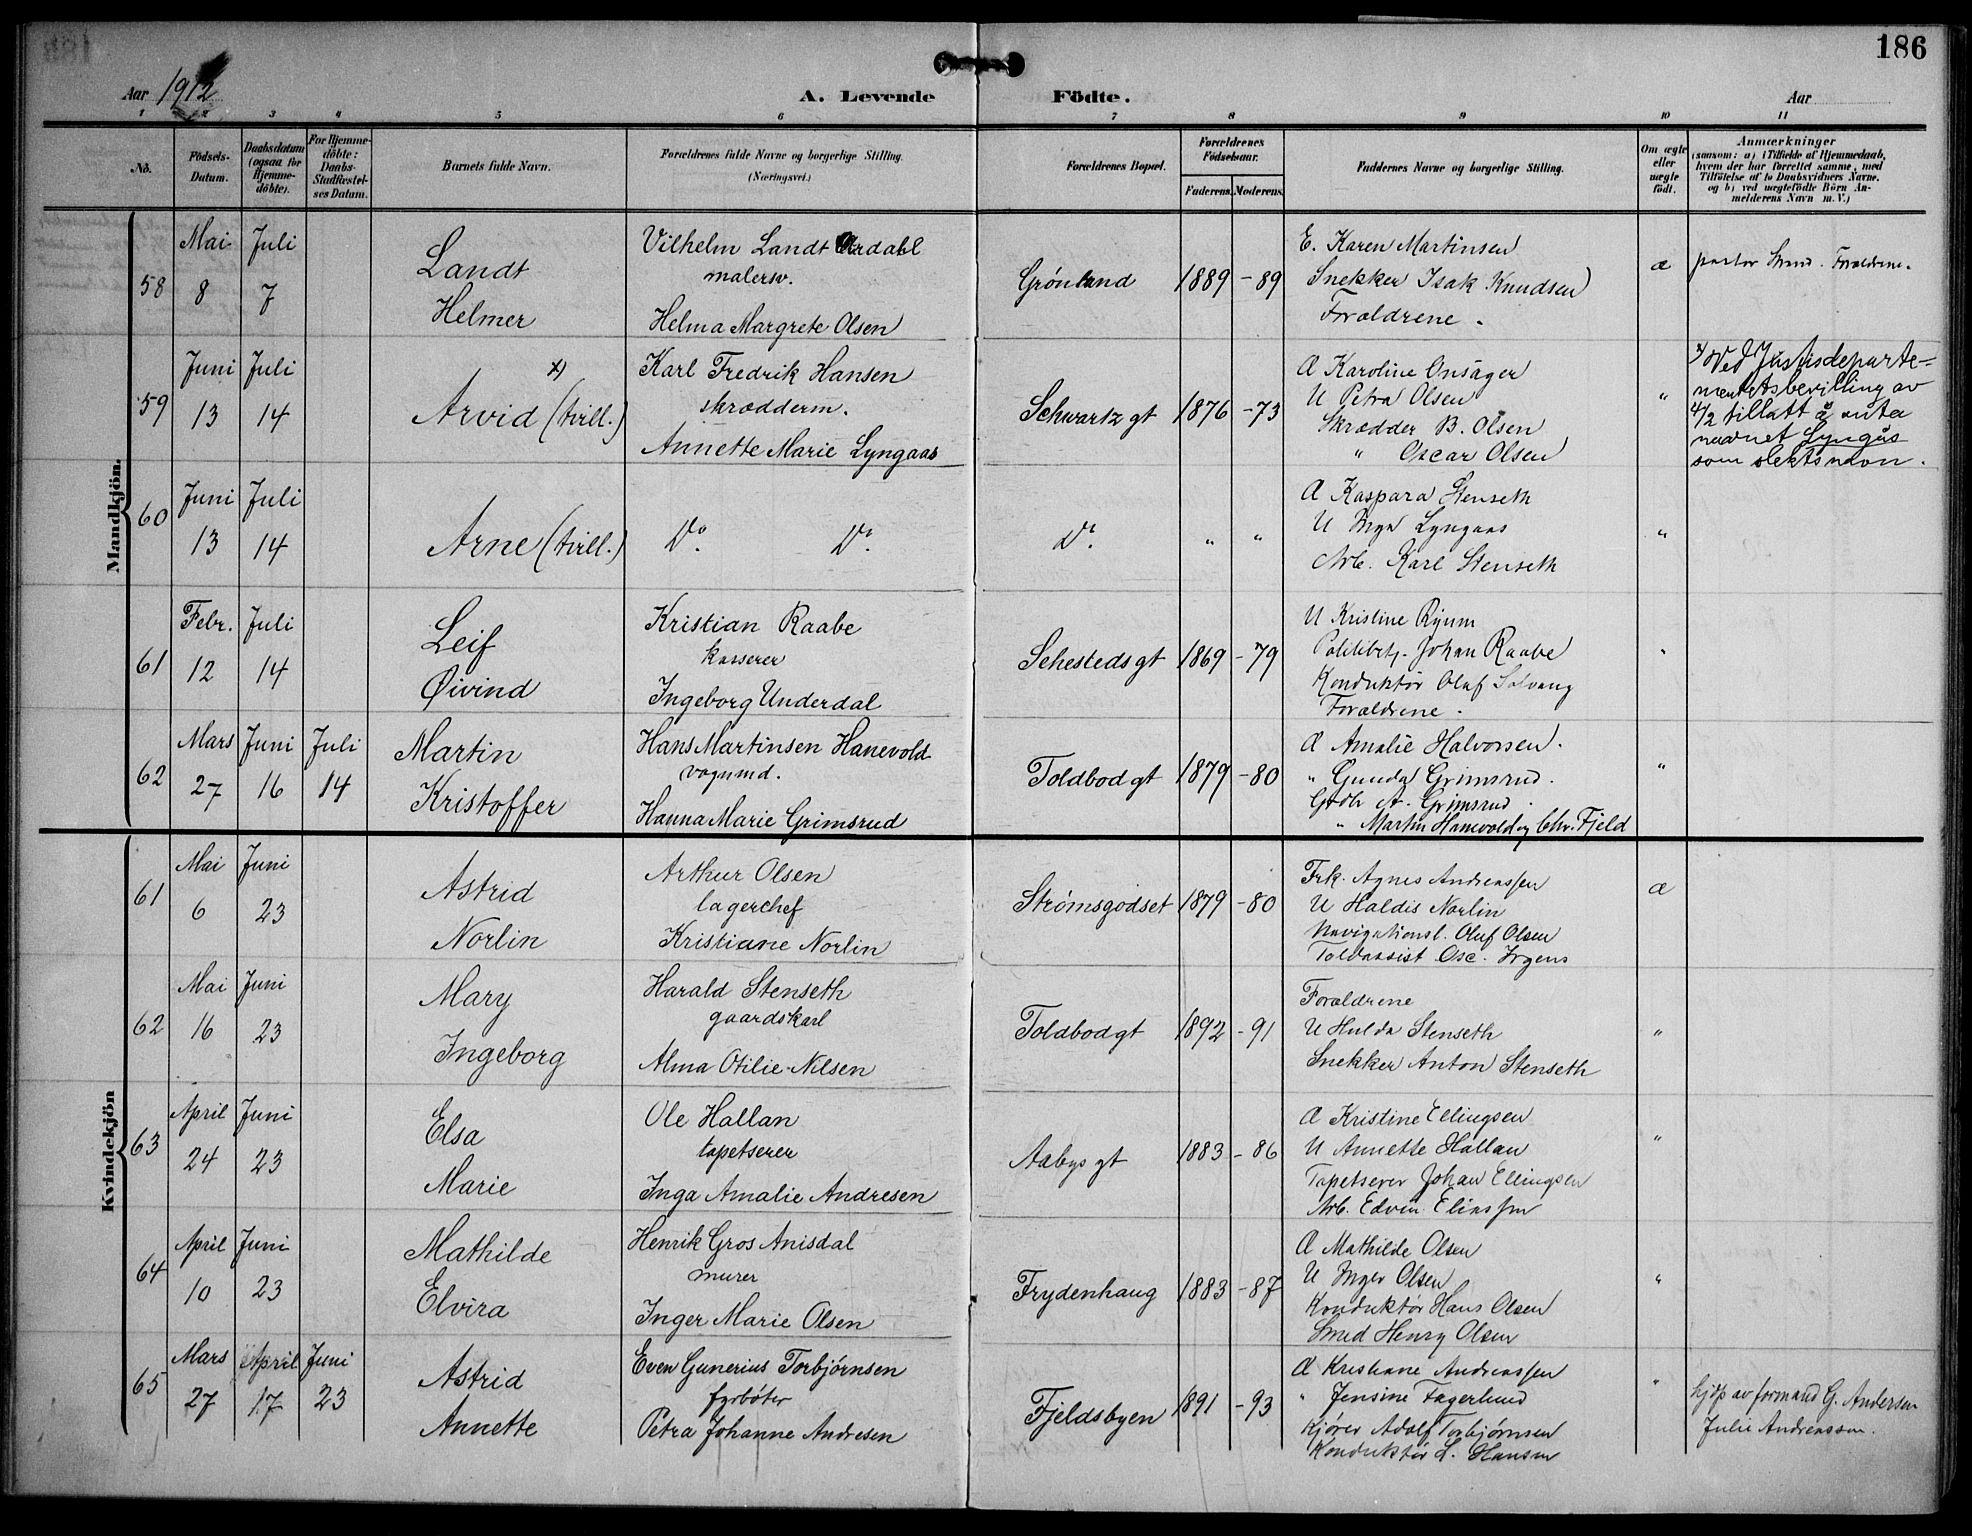 186
Aar 1912
A. Levende Födte.
Aar
1 2 3 4 5 6 7 8 9 10 11
No.
Födsels-Datum.
Daabsdatum (ogsaa for Hjemme-döbte).
For Hjemme-döbte: Daabs-Stadfæstel-ses Datum.
Barnets fulde Navn.
Forældrenes fulde Navne og borgerlige Stilling.
(Næringsvei.)
Forældrenes Bopæl.
Forældrenes Födselsaar.
Faderens. Moderens.
Faddernes Navne og borgerlige Stilling.
Om ægte eller uægte födt.
Anmærkninger
(saasom: a) i Tilfælde af Hjemmedaab,
hvem der har forrettet samme, med
Tilföielse af to Daabsvidners Navne,
og b) ved uægtefödte Börn An-
melderens Navn m. V.)
Mandkjön.
58
Mai 8
Juli 7
Landt
Helmer
Vilhelm Landt Ardahl
malersv.
Helma Margrete Olsen
Grønland
1889 - 89
E. Karen Martinsen
Snekker Isak Knudsen
Forældrene.
æ
pastor Strand. Forældrene.
59
Juni 13
Juli 14
x)
Arvid (tvill.)
Karl Fredrik Hansen
skrædderm.
Annette Marie Lyngaas
Schwartz gt
1876 - 73
Æ Karoline Onsager
U Petra Olsen
Skrædder B. Olsen
" Oscar Olsen
"
x) Ved Justisdeparte-
mentets bevilling av
4/2 tillatt å anta
navnet Lyngås
som slektsnavn.
60
Juni 13
Juli 14
Arne (tvill.)
Do. Do.
Do.
" "
Æ Kaspara Stenseth
U Inga Lyngaas
Arb. Karl Stenseth
"
61
Febr. 12
Juli 14
Leif
Øivind
Kristian Raabe
kasserer
Ingeborg Underdal
Sehestedsgt
1869 - 79
U Kristine Ryum
Politibetj. Johan Raabe
Konduktør Oluf Solvang
Forældrene.
"
62
Mars 27
Juni 16
Juli 14
Martin
Kristoffer
Hans Martinsen Hanevold
vognmd.
Hanna Marie Grimsrud
Toldbodgt
1879 - 80
Æ Amalie Halvorsen.
" Gunda Grimsrud.
Gdbr A. Grimsrud.
" Martin Hanevold og Chr. Fjeld
"
Kvindekjön
61
Mai 6
Juni 23
Astrid
Norlin
Arthur Olsen
lagerchef
Kristiane Norlin
Strømsgodset
1879 - 80
Frk. Agnes Andreassen
U Haldis Norlin
Navigationsl. Oluf Olsen
Toldassist Osc. Irgens
æ
62
Mai 16
Juni 23
Mary
Ingeborg
Harald Stenseth
gaardskarl
Alma Otilie Nilsen
Toldbodgt
1892 - 91
Forældrene
U Hulda Stenseth
Snekker Anton Stenseth
"
63
April 24
Juni 23
Elsa
Marie
Ole Hallan
tapetserer
Inga Amalie Andresen
Aabys gt
1883 - 86
Æ Kristine Ellingsen
U Annette Hallan
Tapetserer Johan Ellingsen
Arb. Edvin Eliassen
"
64
April 10
Juni 23
Mathilde
Elvira
Henrik Gros Anisdal
murer
Inger Marie Olsen
Frydenhaug
1883 - 87
Æ Mathilde Olsen
U Inger Olsen
Konduktør Hans Olsen
Smed Henry Olsen
"
65
Mars 27
April 17
Juni 23
Astrid
Annette
Even Gunerius Torbjørnsen
fyrbøter
Petra Johanne Andresen
Fjeldsbyen
1891 - 93
Æ Kristiane Andreassen
" Jensine Fagerlund
Kjører Adolf Torbjørnsen
Konduktør L. Hansen
"
hjdp av formand G. Andersen
Julie Andreassen.